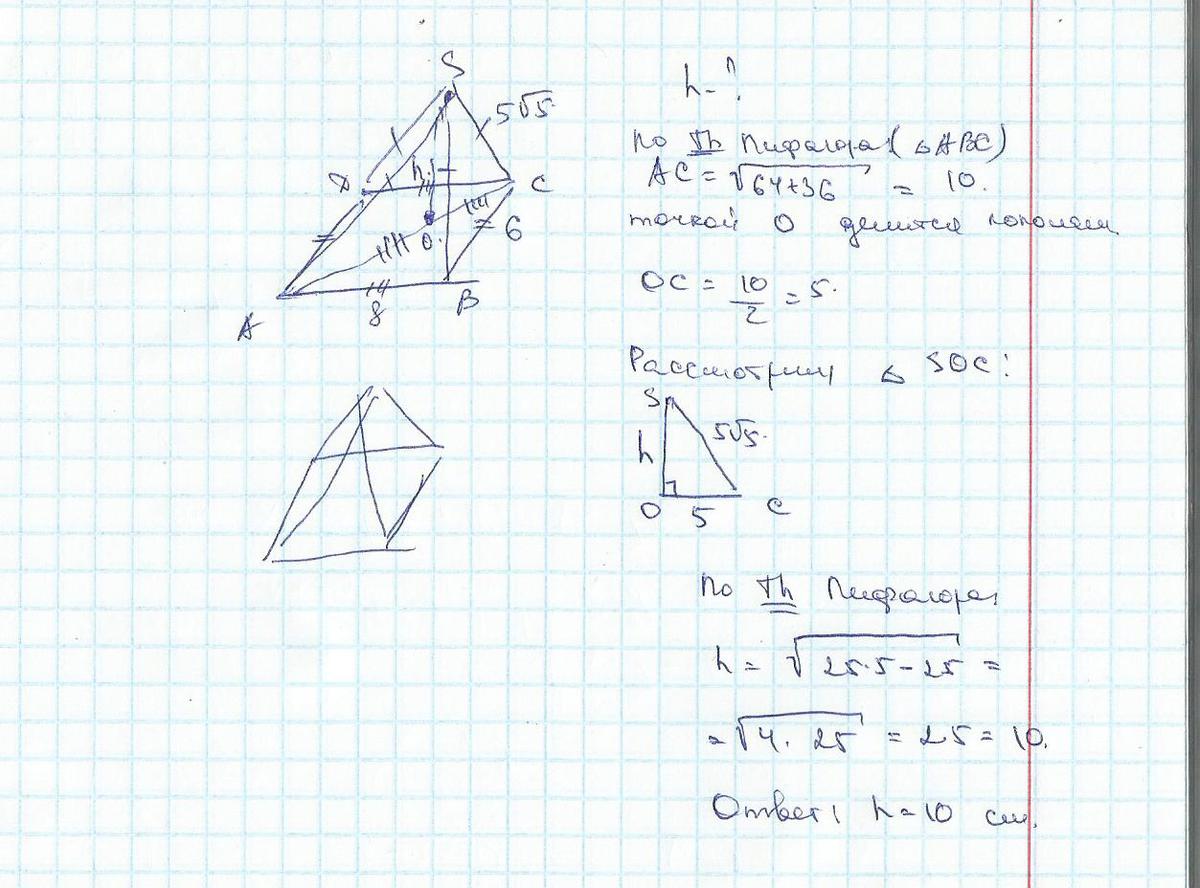 S
5√5
h
D
C
O
6
8
A
B
h - ?
По Th Пифагора (△ABC)
AC = √64+36 = 10.
точкой O делится пополам
OC = 10/2 = 5.
Рассмотрим △ SOC:
S
h
5√5
O
5
C
По Th Пифагора
h = √25·5-25 =
= √4·25 = 2·5 = 10.
Ответ: h = 10 см.